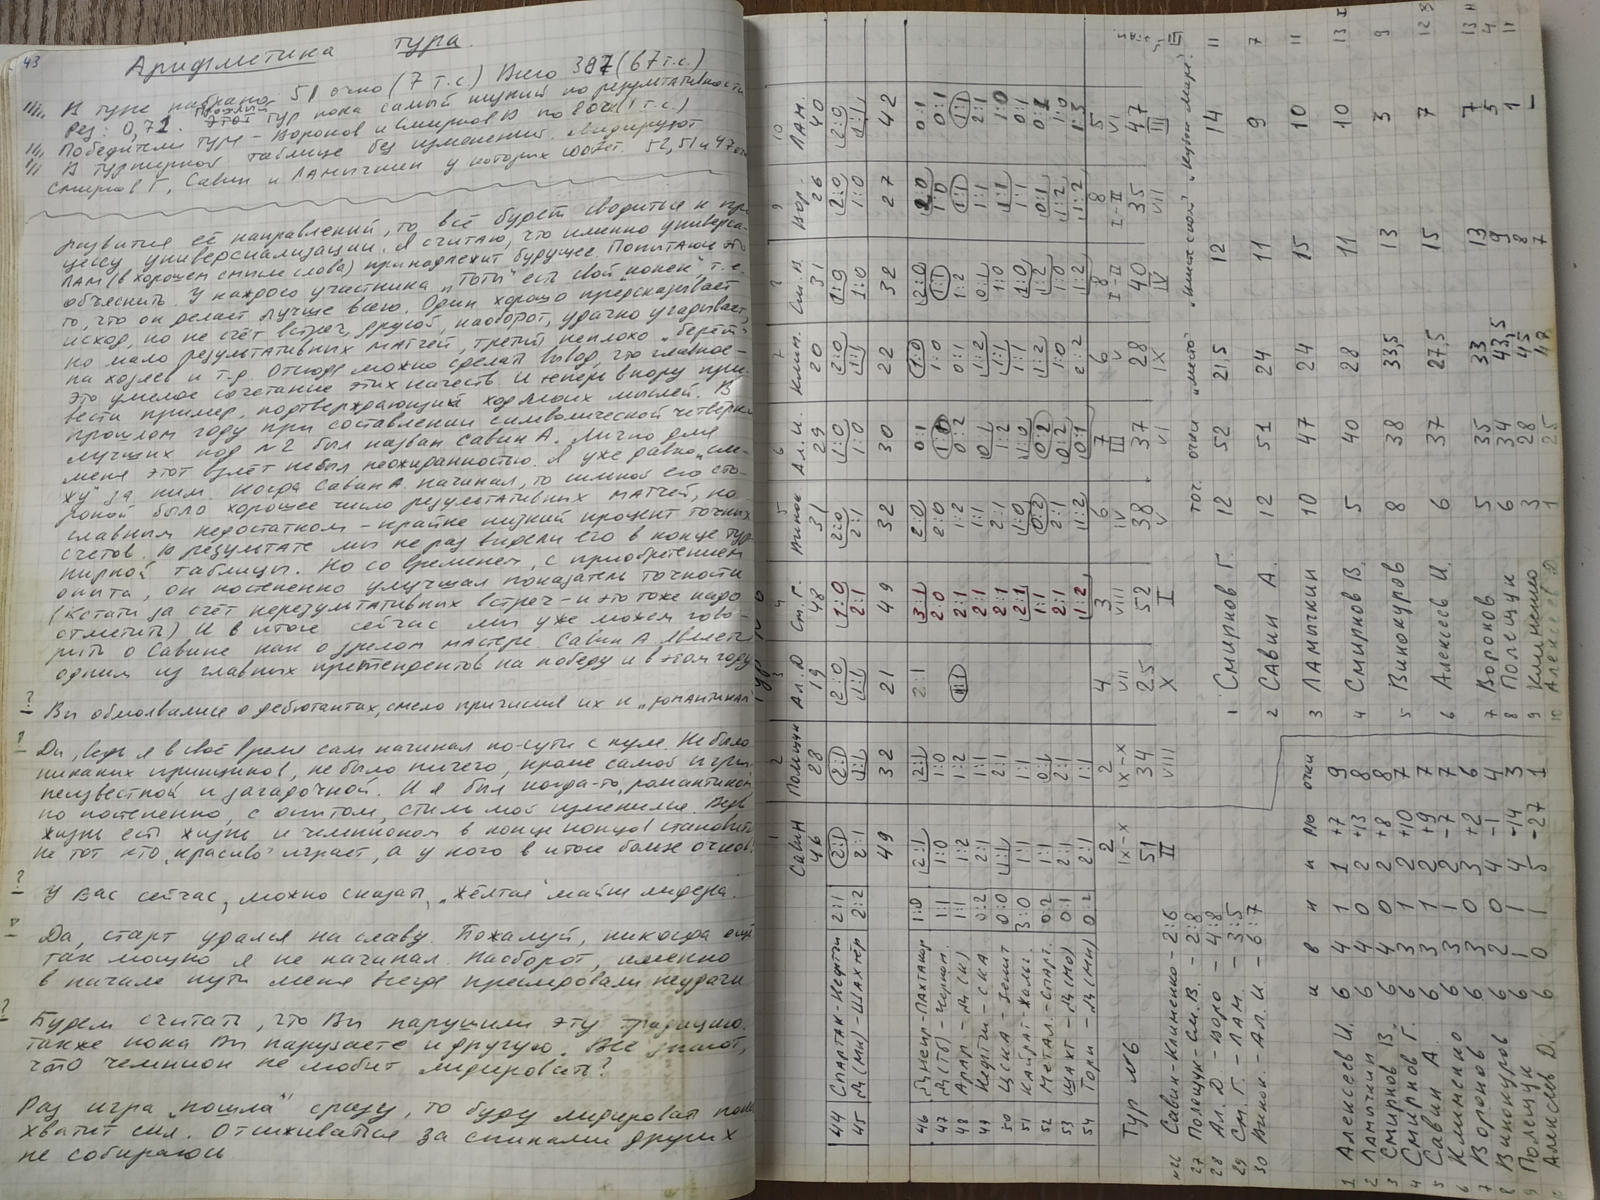 43
Арифметика тура.
В туре набрано 51 очко (7 т.с) Всего 387 (67 т.с.)
Рез: 0,71. Этот тур пока самый низкий по результативности
Победители тура - Воронов и Смирнов В по 8 очк (1 т.с.)
В турнирной таблице без изменений. Лидируют
Смирнов Г, Савин и Ламычкин у которых 52, 51 и 47 очк
развития её направлений, то всё будет сводиться к про-
цессу универсиализации. Я считаю, что именно универса-
лам (в хорошем смысле слова) принадлежит будущее. Попытаюсь это
объяснить. У каждого участника "Тоти" есть свой "конек", т.е.
то, что он делает лучше всего. Один хорошо предсказывает
исход, но не счёт встреч, другой, наоборот, удачно угадывает,
но мало результативных матчей, третий неплохо "берет"
на хозяев и т.д. Отсюда можно сделать вывод, что главное -
это умелое сочетание этих качеств. И теперь впору при-
вести пример, подтверждающий ход моих мыслей. В
прошлом году при составлении символической четверки
лучших под №2 был назван Савин А. Лично для
меня этот взлёт не был неожиданностью. Я уже давно "сле-
жу" за ним. Когда Савин А. начинал, то сильной его сто-
роной было хорошее число результативных матчей, но
главным недостатком - крайне низкий процент точных
счетов. В результате мы не раз видели его в конце тур-
нирной таблицы. Но со временем, с приобретением
опыта, он постепенно улучшал показатель точности
(кстати за счёт нерезультативных встреч - и это тоже надо
отметить) И в итоге сейчас мы уже можем гово-
рить о Савине как о зрелом мастере. Савин А. является
одним из главных претендентов на победу и в этом году
? Вы обмолвились о дебютантах, смело причислив их к "романтикам"
Да, ведь я в своё время сам начинал по-сути с нуля. Не было
никаких принципов, не было ничего, кроме самой игры
неизвестной и загадочной. И я был когда-то "романтиком"
но постепенно, с опытом, стиль мой изменился. Ведь
жизнь есть жизнь и чемпионом в конце концов становится
не тот кто "красиво" играет, а у кого в итоге больше очков.
? У Вас сейчас, можно сказать, "жёлтая" майка лидера.
Да, старт удался на славу. Пожалуй, никогда ещё
так мощно я не начинал. Наоборот, именно
в начале пути меня всегда преследовали неудачи.
? Будем считать, что Вы нарушили эту традицию.
Также пока Вы нарушаете и другую. Все знают,
что чемпион не любит лидировать?
Раз игра "пошла" сразу, то буду лидировать пока
хватит сил. Отсиживаться за спинами других
не собираюсь
1 2 3 4 5 6 7 8 9 10
Савин Полещук Ал. Д См. Г. Виноо Ал. И Клим. См. В. Вор. Лам.
46 28 19 48 31 29 20 31 26 40
44 Спартак - Нефтчи 2:1 2:1 2:1 2:0 1:0 2:0 1:0 2:0 1:0 2:0 2:0
45 Д (Мн) - Шахтёр 2:2 2:1 1:1 1:1 2:1 2:1 1:0 1:1 1:0 1:0 1:1
49 32 21 49 32 30 22 32 27 42
46 Днепр - Пахтакор 1:0 2:1 2:1 2:1 3:1 2:0 0:1 1:0 2:0 2:0 0:1
47 Д (Тб) - Черном. 1:1 1:0 1:0 2:0 2:0 1:1 1:0 1:1 1:0 0:1
48 Арар - Д (К) 1:1 1:2 1:2 1:1 2:1 1:2 0:2 0:1 1:2 1:1 1:1
49 Нефтчи - СКА 0:2 2:1 1:1 2:1 1:1 0:1 1:2 0:1 1:1 2:1
50 ЦСКА - Зенит 0:0 1:1 2:1 2:1 2:1 1:2 1:1 1:0 1:1 1:0
51 Кайрат - Жальг. 3:0 1:1 1:1 2:1 1:0 1:0 1:1 1:0 1:1 0:1
52 Метал. - Спарт. 0:2 1:1 0:1 1:1 0:2 0:2 1:2 1:2 0:1 0:1
53 Шахт - Д (Мо) 0:1 2:1 2:1 2:1 2:1 0:2 1:0 1:0 1:2 1:0
54 Торп - Д (Мн) 0:2 2:1 1:1 1:2 1:2 0:1 2:2 1:2 1:2 1:3
2 2 4 3 6 7 6 8 8 5
IX-X IX-X VII VIII IV III V I-II I-II VI
51 34 25 52 38 37 28 40 35 47
II VIII X I V VI IX IV VII III
Тур №6
№26 Савин - Клименко - 2:6
27 Полещук - См. В. - 2:8
28 Ал. Д - Воро - 4:8
29 См. Г. - Лам. - 3:5
30 Винок. - Ал. И - 6:7
точ. очки "место"
1 Смирнов Г. 12 52 21,5 12 14 11
2 Савин А. 12 51 24 11 9 7
3 Ламычкин 10 47 24 15 10 11
4 Смирнов В. 5 40 28 11 10 13
5 Винокуров 8 38 33,5 13 3 9
6 Алексеев И. 6 37 27,5 15 7 12
7 Воронов 5 35 33 13 7 13
8 Полещук 6 34 43,5 9 5 4
9 Клименко 3 28 45 8 1 11
10 Алексеев Д. 1 25 48 7
и в н п р/о очки
1 Алексеев И. 6 4 1 1 +7 9
2 Ламычкин 6 4 0 2 +13 8
3 Смирнов В. 6 4 0 2 +8 8
4 Смирнов Г. 6 3 1 2 +10 7
5 Савин А. 6 3 1 2 +9 7
6 Клименко 6 3 1 2 -7 7
7 Воронов 6 3 0 3 +2 6
8 Винокуров 6 2 0 4 -1 4
9 Полещук 6 1 1 4 -14 3
Алексеев Д. 6 0 1 5 -27 1